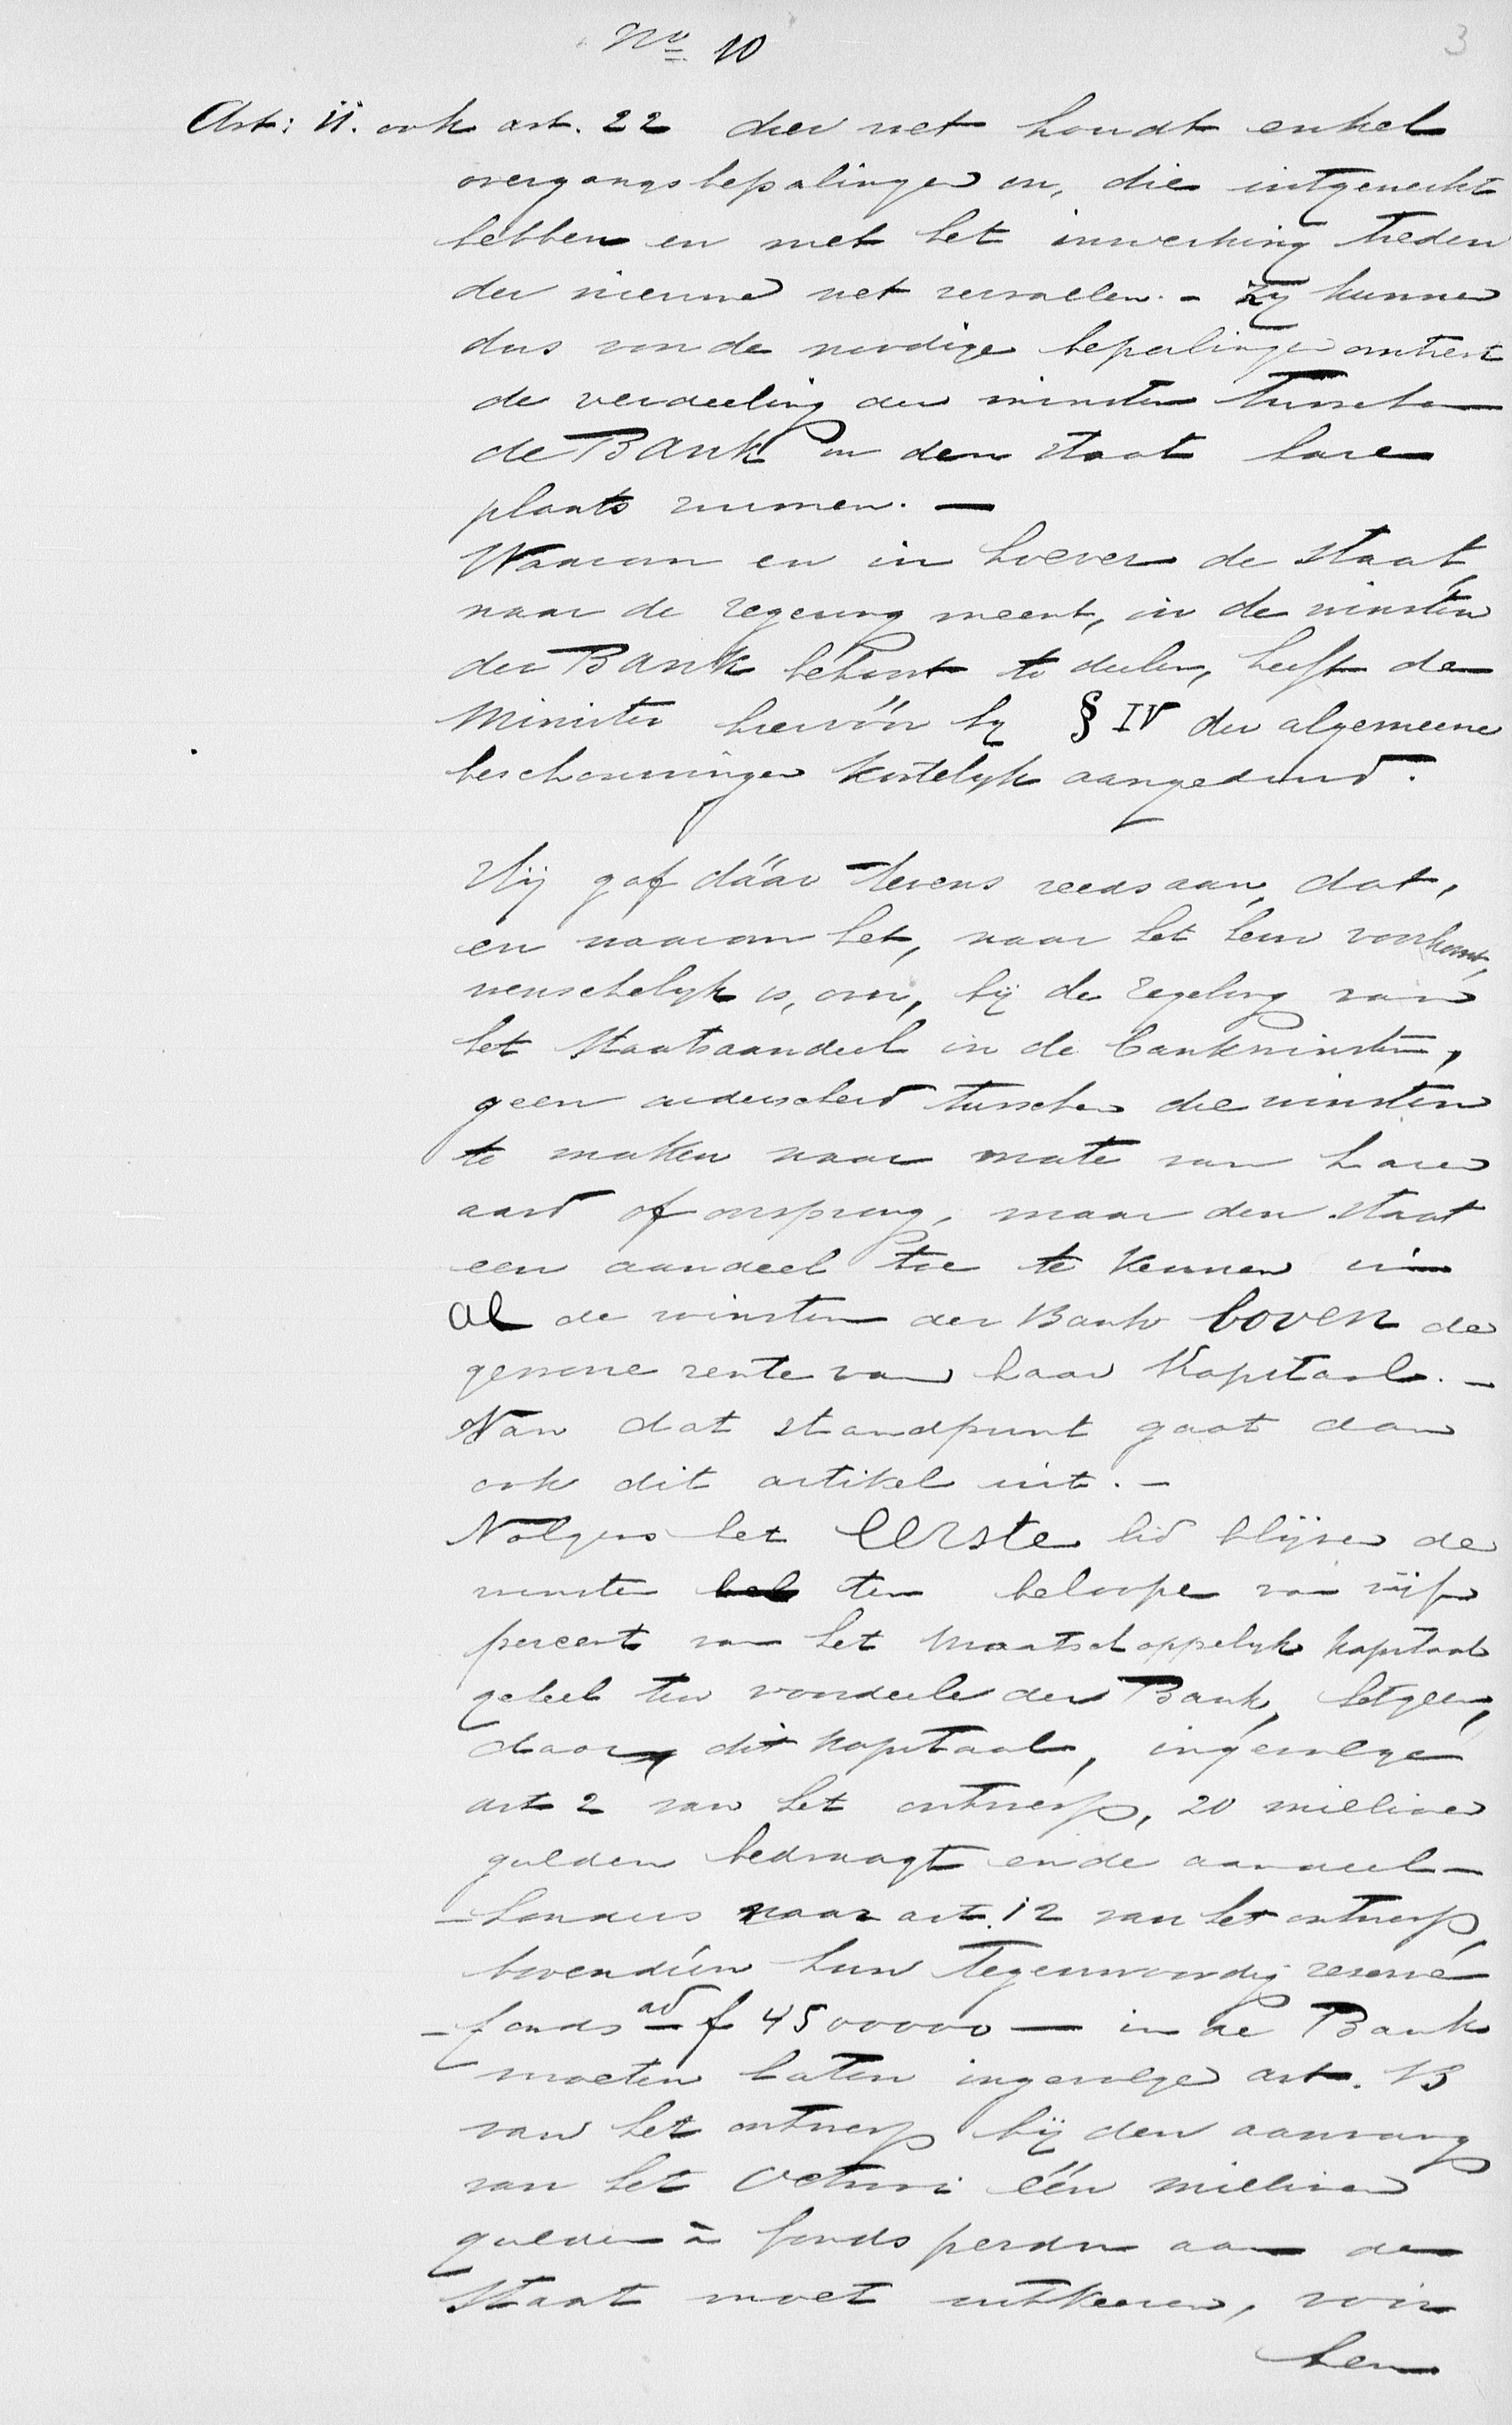 No 10
3
Art: 11. ook art. 22 der wet houdt enkel
overgangsbepalingen in, die uitgewerkt
hebben en met het inwerking treden
der nieuwe wet vervallen. - Zy kunnen
dus voor de noodige bepalingen omtrent
de verdeeling der winsten tusschen
de Bank en den Staat hare
plaats ruimen. —
Waarom en in hoever de Staat,
naar de regering meent, in de winsten
der Bank behoort te deelen, heeft de
Minister hiervóór by § IV der algemeene
beschouwingen kortelyk aangeduid.
Hij gaf dáár tevens reeds aan, dat,
en waarom het, naar het hem voorkomt,
wenschelyk is, om, bij de regeling van
het Staatsaandeel in de bankwinsten,
geen onderscheid tusschen die winsten
te maken naar mate van haren
aard of oorsprong, maar den Staat
een aandeel toe te kennen in
al de winsten der Bank boven de
gewone rente van haar Kapitaal. -
Van dat standpunt gaat dan
ook dit artikel uit. -
Volgens het eerste lid blijven de
winsten ten beloope van vijf
percent van het Maatschappelyk Kapitaal
geheel ten voordeele der Bank, hetgeen,
daar dit Kapitaal, ingevolge
art 2 van het ontwerp, 20 millioen
gulden bedraagt en de aandeel-
-houders naar art. 12 van het ontwerp,
bovendien hun tegenwoordig reserve
-fonds ad f 4500000 — in de Bank
moeten laten ingevolge art. 13
van het ontwerp bij den aanvang
van het Octrooi één millioen
gulden à fonds perdu aan den
Staat moet uitkeeren, voor
hen